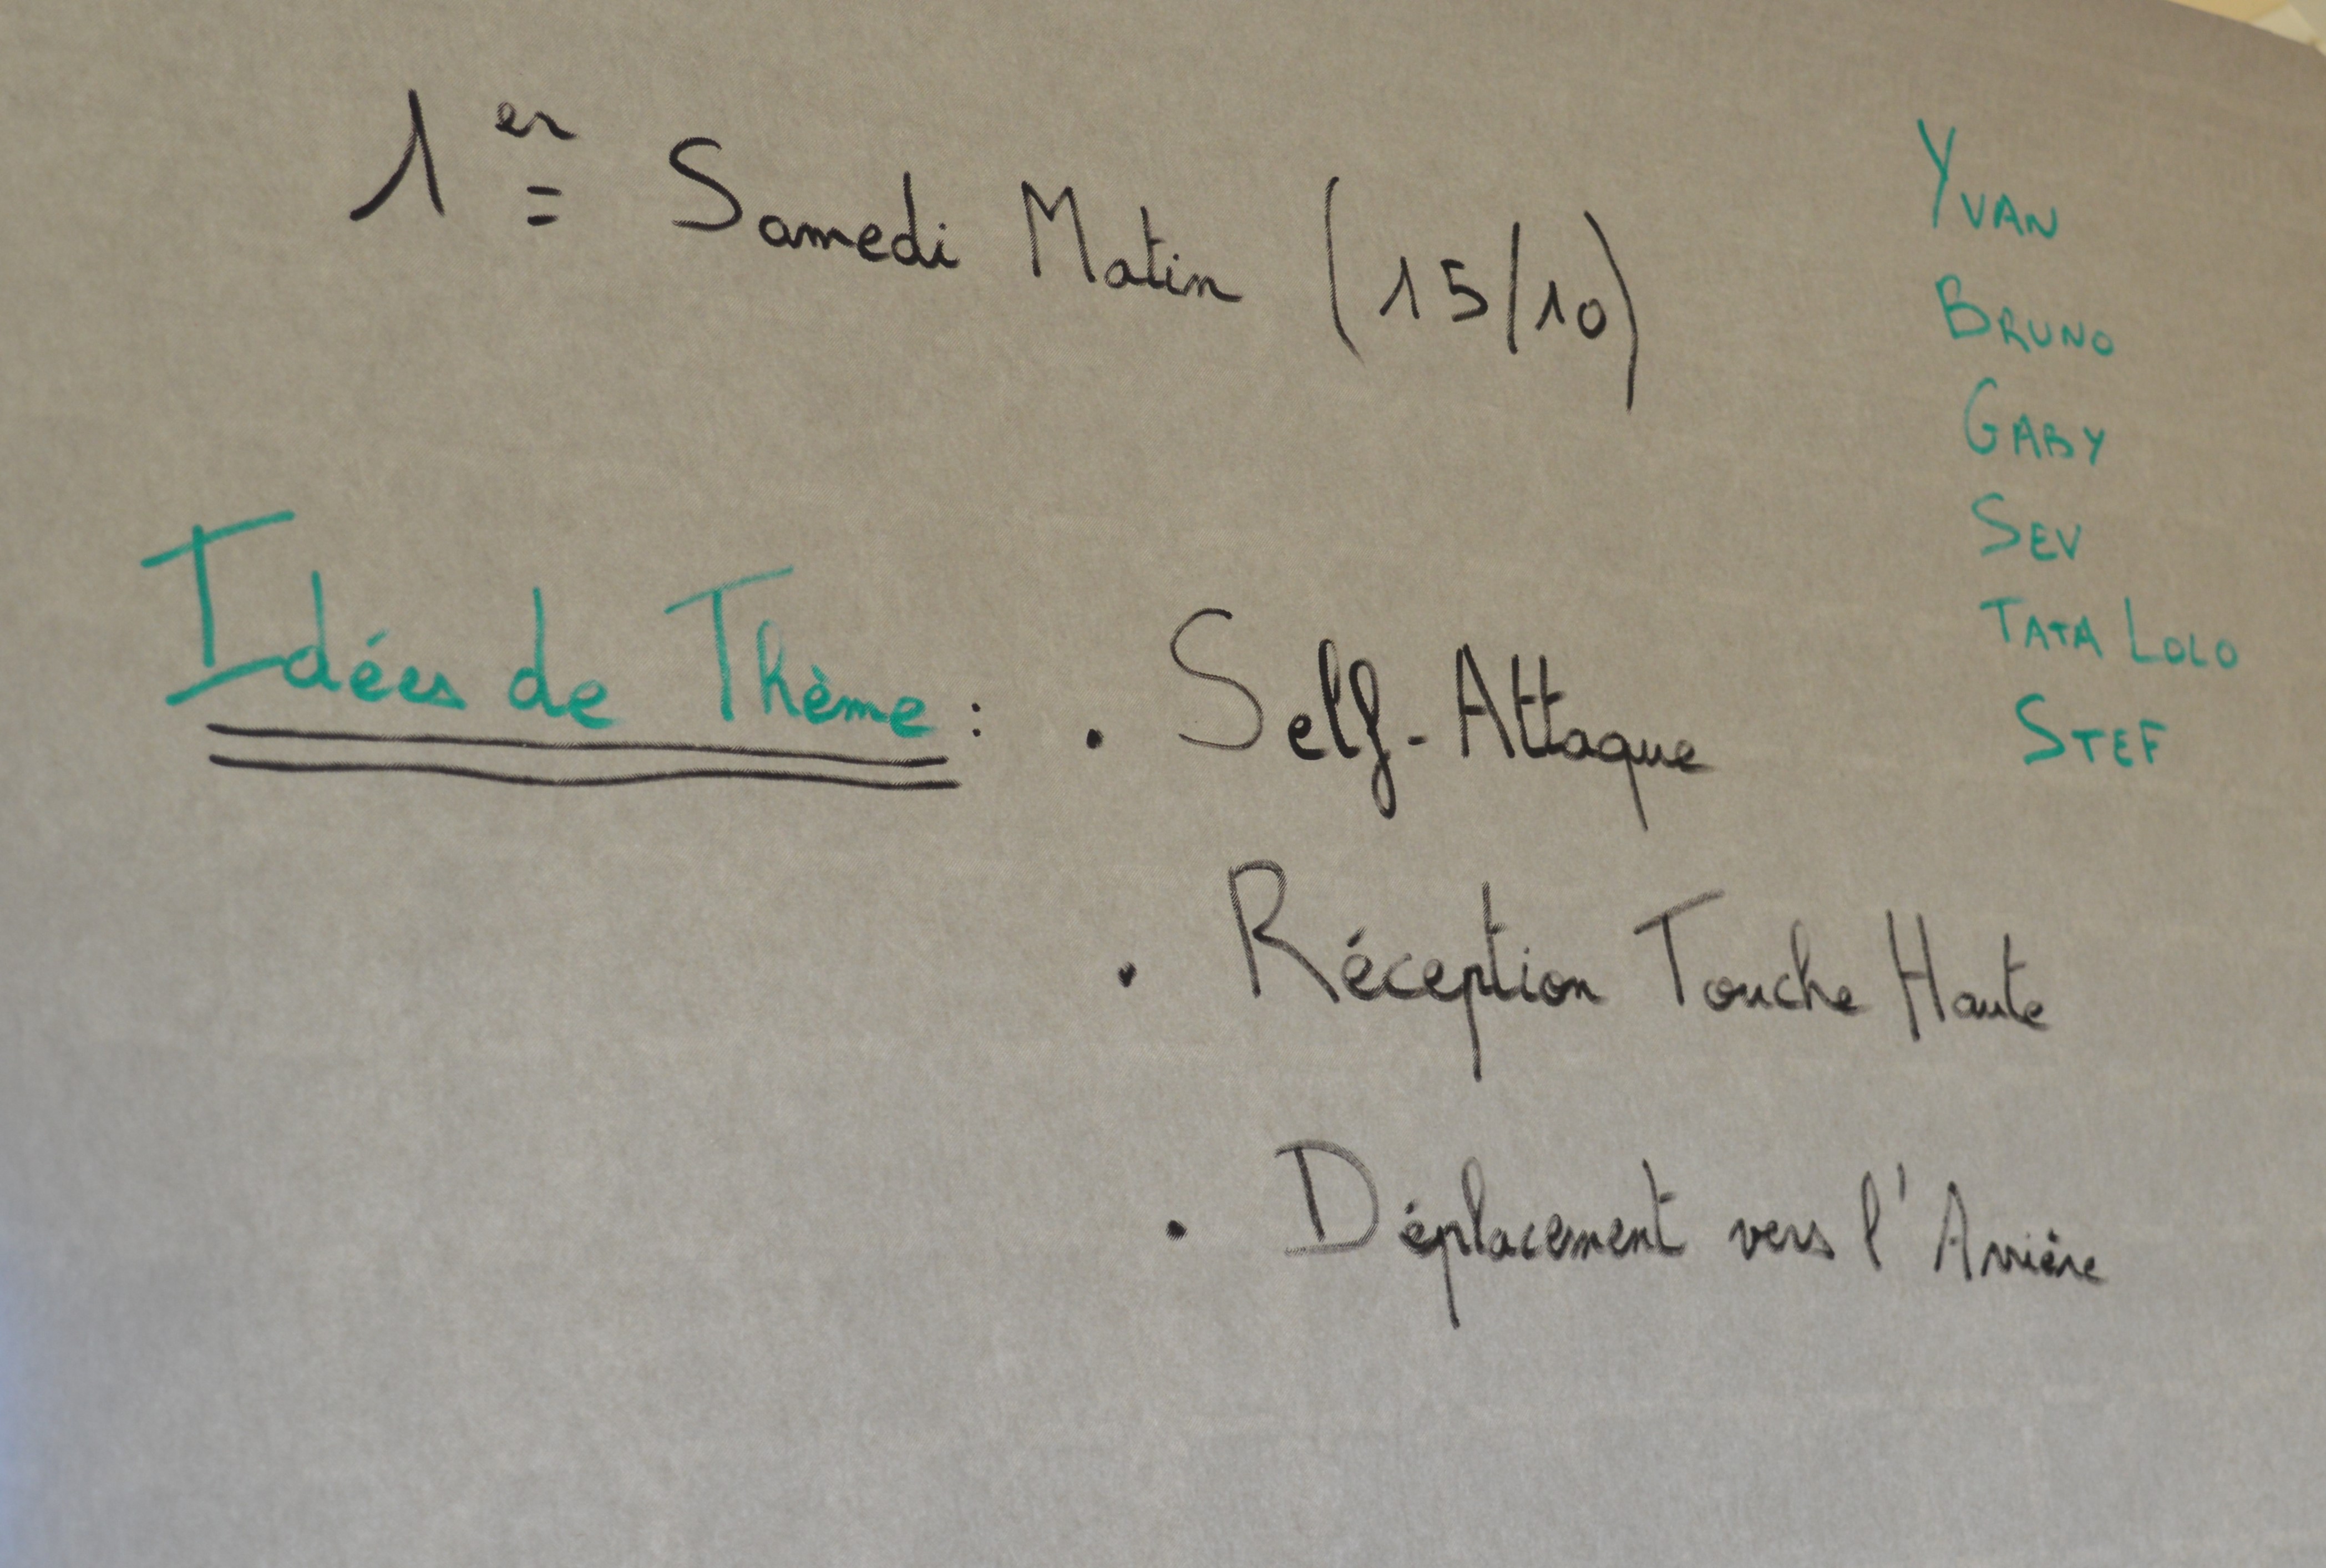 1er Samedi Matin (15/10)
Yvan
Bruno
Gaby
Sev
Tata Lolo
Stef
Idées de Thème : • Self-Attaque
• Réception Touche Haute
• Déplacement vers l'Arrière